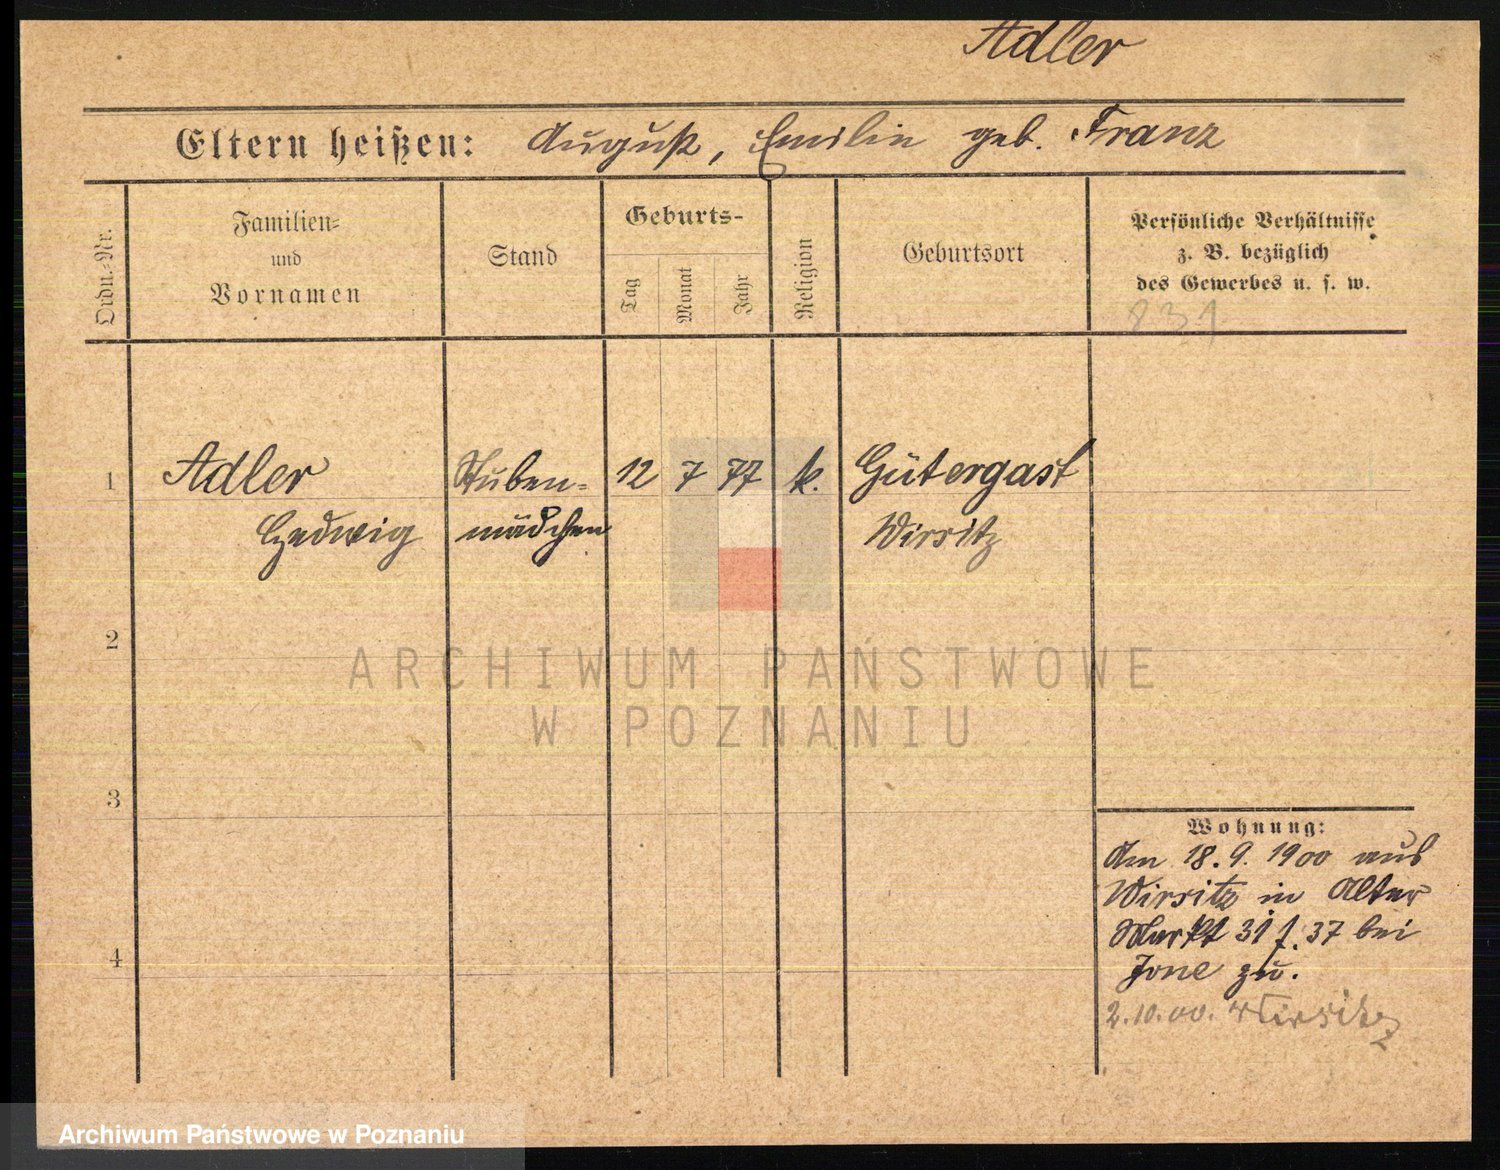 Adler
Eltern heißen: August, Emilie geb. Franz
Ordn.-Nr.
Familien-
und
Vornamen
Stand
Geburts-
Tag
Monat
Jahr
Religion
Geburtsort
Persönliche Verhältnisse
z. B. bezüglich
des Gewerbes u. s. w.
231
1 Adler Stuben- 12 7 77 k. Gütergast
Hedwig mädchen Wirsitz
2
ARCHIWUM PAŃSTWOWE
W POZNANIU
3
Wohnung:
Am 18.9.1900 aus
Wirsitz in Alter
Markt 31 f. 37 bei
Jone zu.
4
2.10.00. Wirsitz
Archiwum Państwowe w Poznaniu